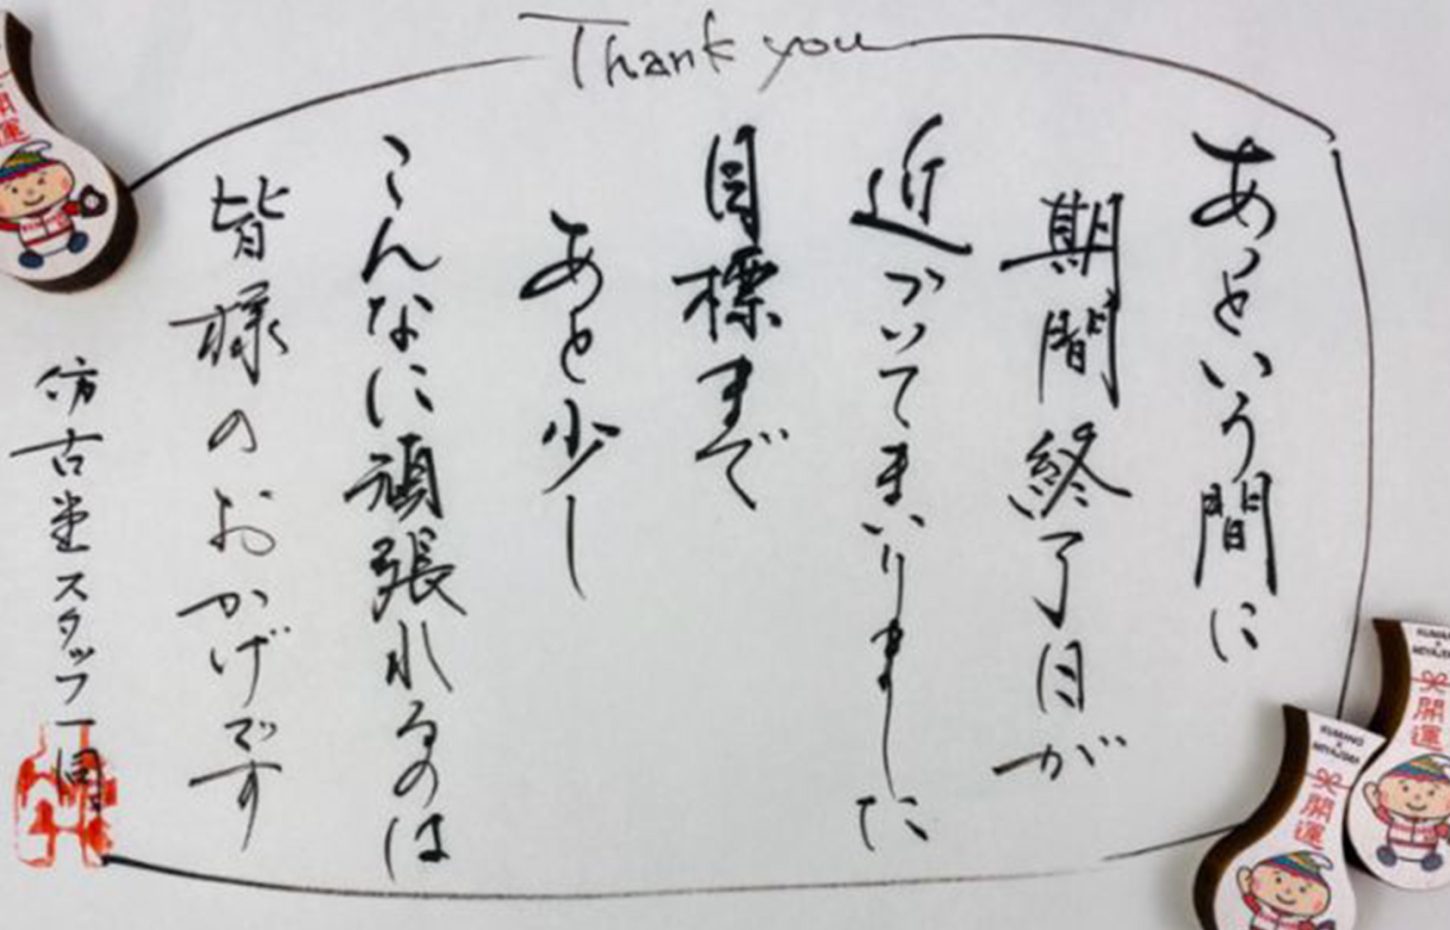 Thank you
あっという間に
期間終了日が
近づいてまいりました
目標まで
あと少し
こんなに頑張れるのは
皆様のおかげです
仿古堂スタッフ一同
開運
KUMANO
×
MIYAJIMA
開運
開運